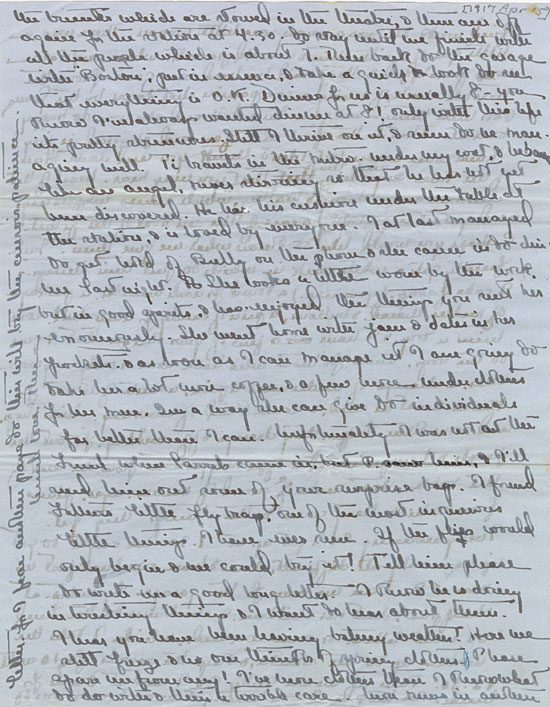 [1917 Apr 15]
the trunks which are stored in the theatre, & then am off
again for the station at 4.30. So on until we finish with
all the people which is about 7. Then back to the garage
with Boston, put in essence, & take a quick look to see
that everything is O.K. Dinner for us is usually 8 - you
know I've always wanted dinner at 8! only with this life
its pretty strenuous. Still I thrive on it, & seem to be man-
aging well. Ti travels in the under my coat, & behaves
like an angel, never stirring so that he has not yet
been discovered. He has his cushion under the table at
the station, & is loved by everyone. I at last managed
to get hold of Billy on the phone & she came in to din-
ner last night. She looks a little worn by the work
but in good spirits, & has enjoyed the things you sent her
enormously. She went home with jam & dates in her
pockets & as soon as I can manage it I am going to
take her a lot more coffee, & a few more under clothes
for her men. In a way she can give to individuals
far better than I can. Unfortunately I was not at the
front when came in, but P. saw him, & I'll
send him out some of your surprise bags. I found
little fly trap, one of the most ingenious
little things I have ever seen. If the flies would
only begin & we could try it! Tell him please
to write me a good long letter. I know he is doing
interesting things & I want to hear about them.
I hear you have been having balmy weather! Here we
still freeze & no one thinks of spring clothes. Please
spare me from any! I've more clothes than I know what
to do with & there is worlds care.
letter for I fear another page to this will try the censor's patience